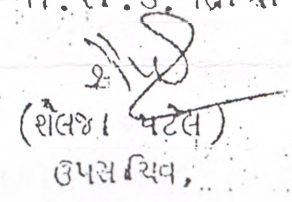 (શૈલજા પટેલ)
ઉપસચિવ.